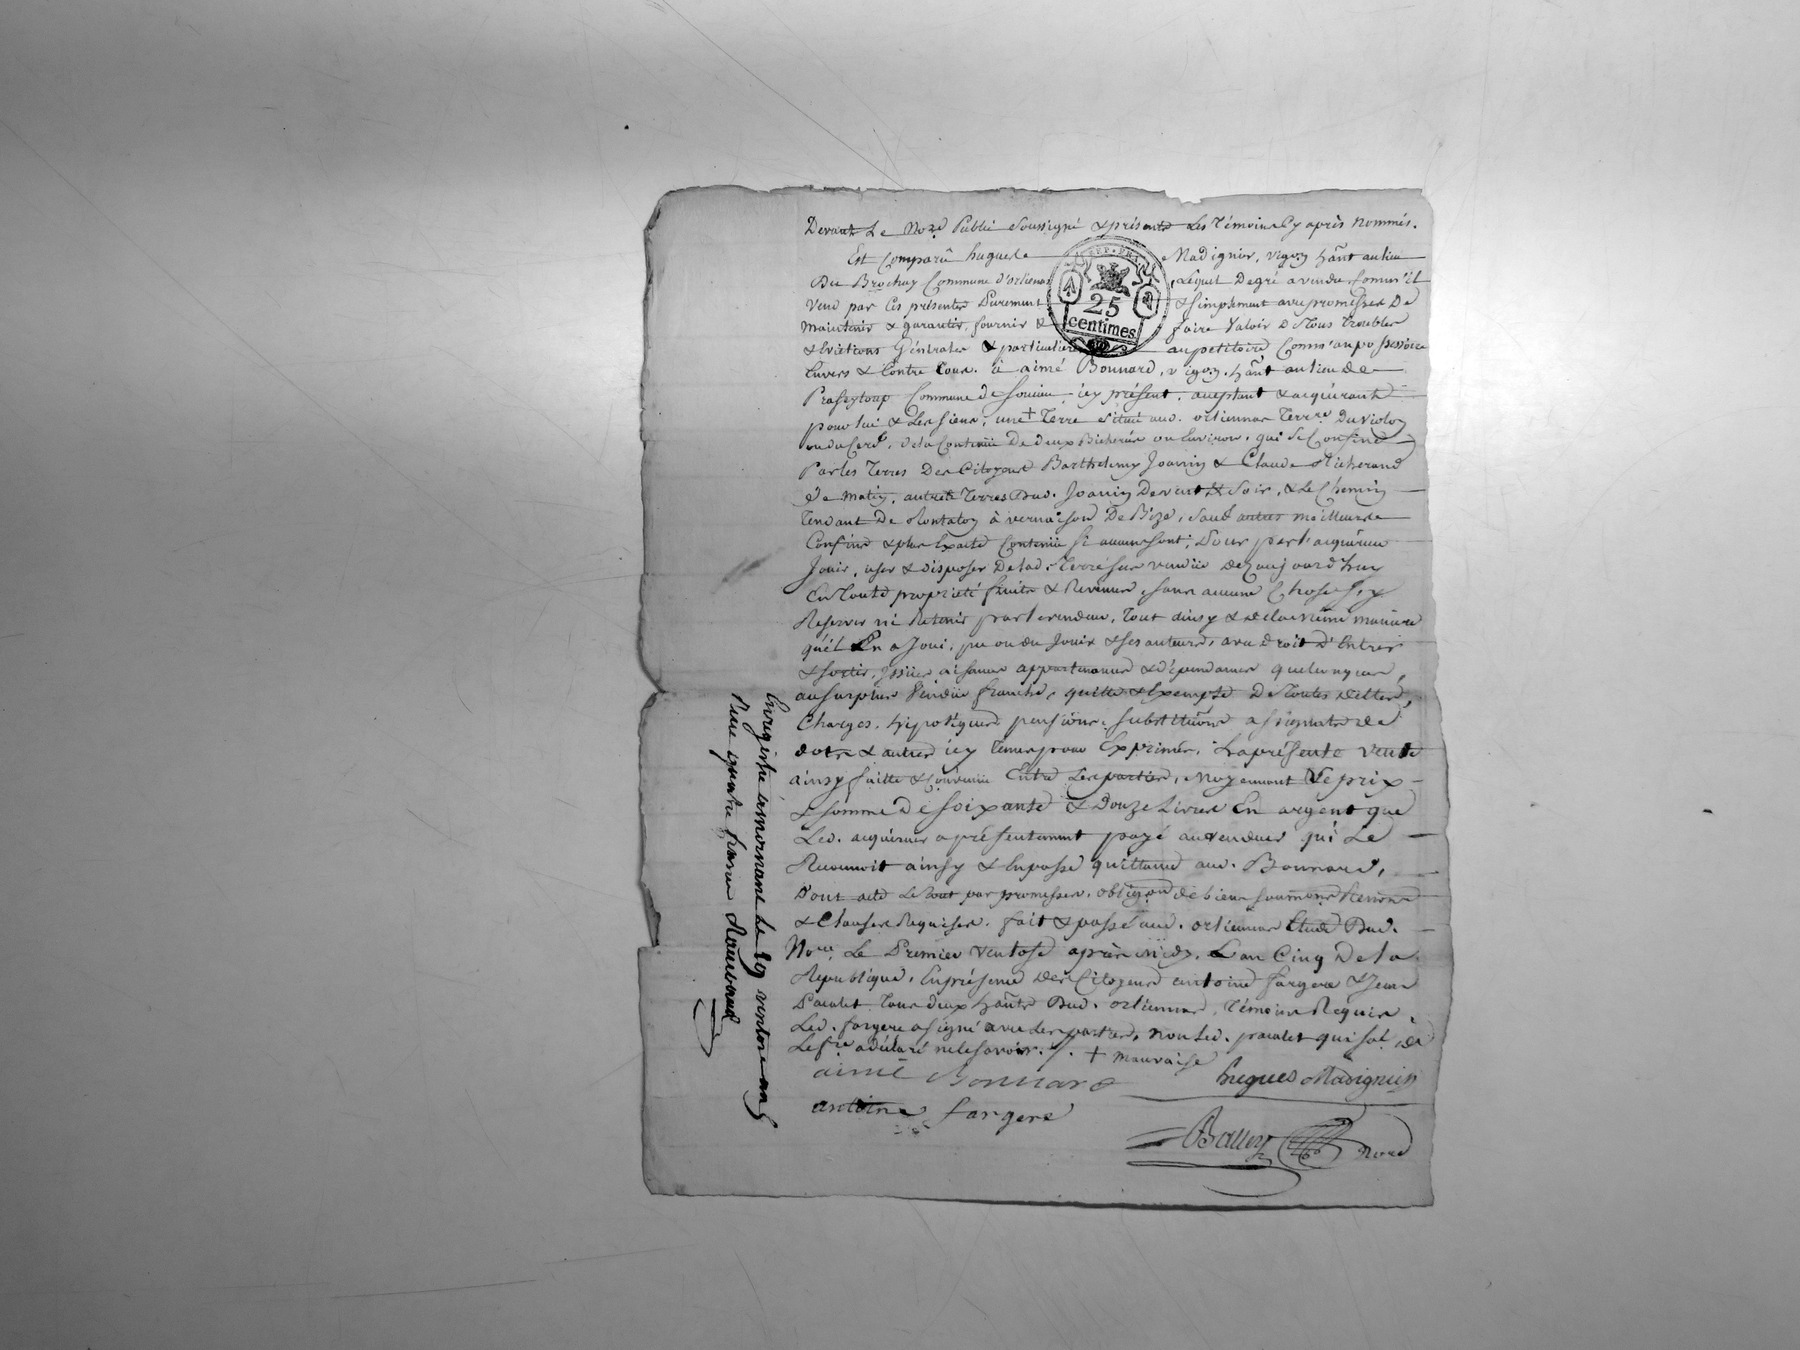 Devant Le No.re Public Soussigné & présents Les Témoins Cy après nommés.
Est Comparu hugues Madignier, vigon habt au lieu
Du Brochay Commune d'orlienas, Lequel De gré a vendu Comm'il
Vend par Ces présentes Purement & simplement avec promesses De
Maintenir & garantir, fournir & faire Valoir De Tous Troubles
& Evictions Générales & particulières au petitoire Comm'au possessoire
Envers & Contre tous. à aimé Bonnard, vigon. habt au lieu de
Commune de Soucieu icy présent, acceptant & acquérant
pour lui & Les siens, une + Terre Située aud. orlienas Terr.re Du Violon
ou du Cerf, De la Contenüe De deux Bicherées ou Environ, qui Se Confine
Par les Terres Des Citoyens Barthelemy Joannin & Claude
De Matin, autres Terres Dud. Joannin De vent, & Soir, & Le Chemin
Tendant De Montaloy à vernaison De Bize, Sauf autres meilleurs
Confins & plus Exacte Contenüe Si aucuns sont, Pour par l'acquéreur
Jouir, user & Disposer De lad. Terre Sus vendüe Dez aujourd'huy
En Toute propriété fruits & Revenus, sans aucune Chose S'y
Reserver ni Retenir par le vendeur, Tout ainsy & De la même manière
qu'il En a Joui, pu ou du Jouir & ses auteurs, avec Droit d'Entrer
& sortir, Issües aisances appartenances & dépendances quelconques,
au surplus Vendüe franche, quitte & Exempte De Toutes Dettes,
Charges, hipotèques pensions, Substitutions assignats de
dots & autres icy Tenus pour Exprimés. La présente vente
ainsy faitte & Convenüe Entre Les parties, Moyennant Le prix
& Somme De Soixante & Douze Livres En argent que
Led. acquéreur a présentement payé au vendeur qui Le
Reconnoit ainsy & En passe quittance aud. Bonnard,
Dont acte Le Tout par promesses, obligaon de biens soumons Renons
& Clauses Requises. fait & passé aud. orlienas Etude Dud.
No.re Le Premier Ventose après midy, L'an Cinq De la
République, En présence Des Citoyens antoine fargere & Jean
Pacalet Tous deux habts Dud. orlienas, Témoins Requis,
Led. fargere a signé avec Les parties, non Led. pacalet qui Sol. De
Le f.re a déclaré ne le savoir. /. + Mauvaise
aimé Bonnard
hugues Madignier
antoine fargere
No.re
Enregistré a mornant Le 19 ventose an 5
Reçu quatre francs
REP. FRA.
25
centimes